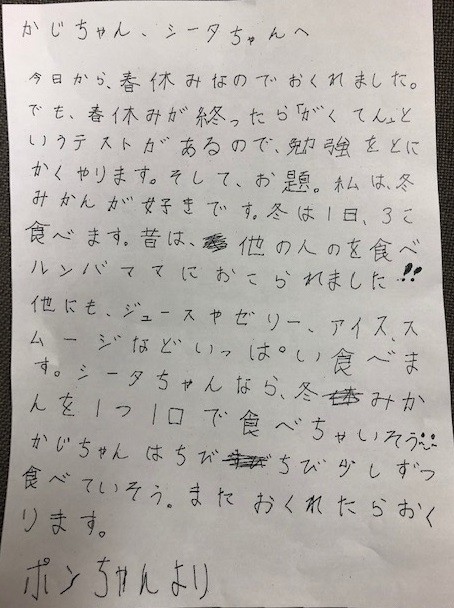 かじちゃん、シータちゃんへ
今日から、春休みなのでおくれました。
でも、春休みが終ったら「がくてん」と
いうテストがあるので、勉強をとに
かくやります。そして、お題。私は、冬
みかんが好きです。冬は1日、3こ
食べます。昔は、他の人のを食べ
ルンバママにおこられました!!
他にも、ジュースやゼリー、アイス、ス
ムージなどいっぱい食べま
す。シータちゃんなら、冬みか
んを1つ1口で食べちゃいそう
かじちゃんはちびちび少しずつ
食べていそう。またおくれたらおく
ります。
ポンちゃんより